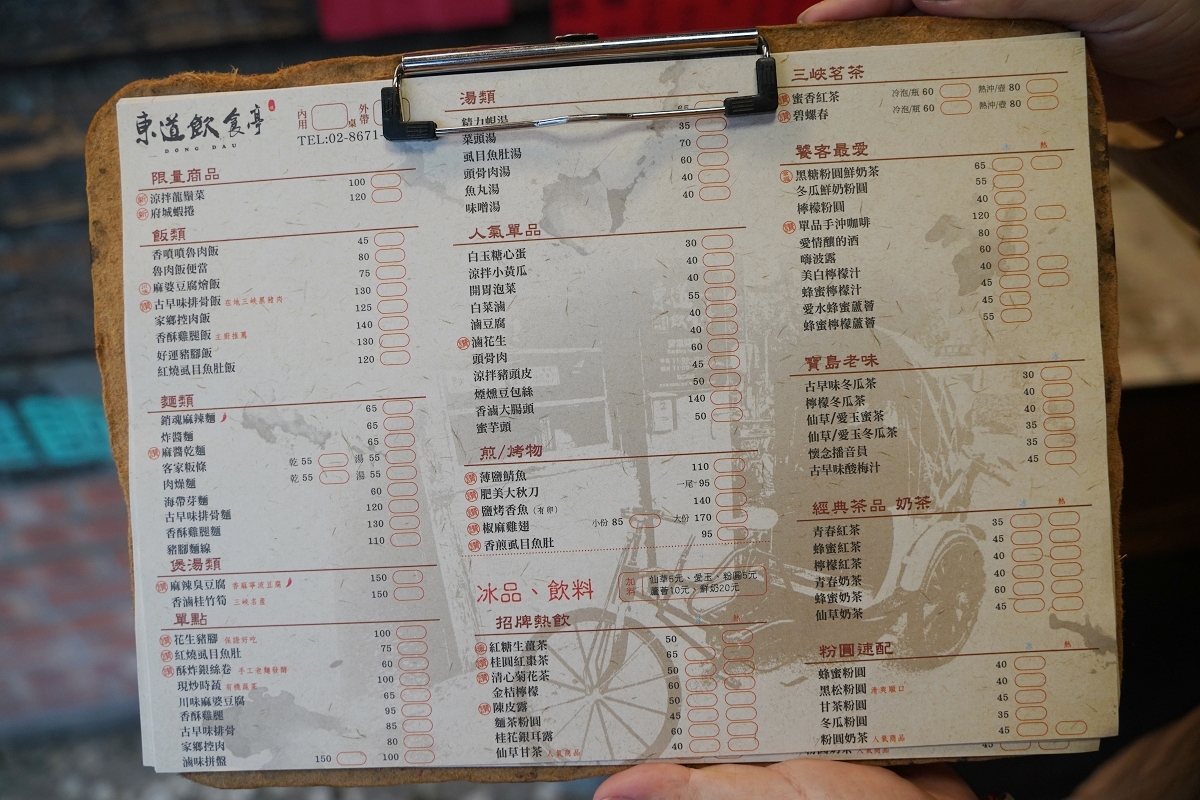 東道飲食亭
DONG DAU
內用
外帶
桌
TEL:02-8671-
限量商品
新 涼拌龍鬚菜 100
新 府城蝦捲 120
飯類
香噴噴魯肉飯 45
魯肉飯便當 80
麻婆豆腐燴飯 75
讚 古早味排骨飯 在地三峽黑豬肉 130
家鄉控肉飯 125
香酥雞腿飯 主廚推薦 140
好運豬腳飯 130
紅燒虱目魚肚飯 120
麵類
銷魂麻辣麵 65
炸醬麵 65
讚 麻醬乾麵 65
客家粄條 乾 55 湯 55
肉燥麵 乾 55 湯 55
海帶芽麵 60
古早味排骨麵 120
香酥雞腿麵 130
豬腳麵線 110
煲湯類
讚 麻辣臭豆腐 150
香滷桂竹筍 三峽名產 150
單點
讚 花生豬腳 保證好吃 100
讚 紅燒虱目魚肚 75
讚 酥炸銀絲卷 手工老麵發酵 60
現炒時蔬 有機蔬菜 100
川味麻婆豆腐 65
香酥雞腿 95
古早味排骨 85
家鄉控肉 80
滷味拼盤 150 100
湯類
精力蜆湯 65
菜頭湯 35
虱目魚肚湯 70
頭骨肉湯 60
魚丸湯 40
味噌湯 40
人氣單品
白玉糖心蛋 30
涼拌小黃瓜 40
開胃泡菜 40
白菜滷 40
滷豆腐 45
讚 滷花生 40
頭骨肉 60
涼拌豬頭皮 45
煙燻豆包絲 50
香滷大腸頭 140
蜜芋頭 50
煎/烤物
讚 薄鹽鯖魚 110
讚 肥美大秋刀 一尾 95
讚 鹽烤香魚(有卵) 140
讚 椒麻雞翅 小份 85 大份 170
讚 香煎虱目魚肚 95
冰品、飲料
加料 仙草5元、愛玉、粉圓5元
蘆薈10元、鮮奶20元
招牌熱飲 冰 熱
紅糖生薑茶 50
讚 桂圓紅棗茶 65
讚 清心菊花茶 50
金桔檸檬 60
讚 陳皮露 50
麵茶粉圓 45
桂花銀耳露 60
仙草甘茶 人氣商品 40
三峽茗茶
讚 蜜香紅茶 冷泡/瓶 60 熱沖/壺 80
讚 碧螺春 冷泡/瓶 60 熱沖/壺 80
饕客最愛 冰 熱
黑糖粉圓鮮奶茶 65
冬瓜鮮奶粉圓 55
檸檬粉圓 40
讚 單品手沖咖啡 120
愛情釀的酒 80
嗨波露 60
美白檸檬汁 40
蜂蜜檸檬汁 45
愛水蜂蜜蘆薈 45
蜂蜜檸檬蘆薈 55
寶島老味 冰
古早味冬瓜茶 30
檸檬冬瓜茶 40
仙草/愛玉蜜茶 40
仙草/愛玉冬瓜茶 35
懷念播音員 35
古早味酸梅汁 45
經典茶品 奶茶 冰 熱
青春紅茶 35
蜂蜜紅茶 45
檸檬紅茶 40
青春奶茶 40
蜂蜜奶茶 60
仙草奶茶 45
粉圓速配 冰 熱
蜂蜜粉圓 40
黑松粉圓 清爽順口 40
甘茶粉圓 40
冬瓜粉圓 35
粉圓奶茶 人氣商品 45